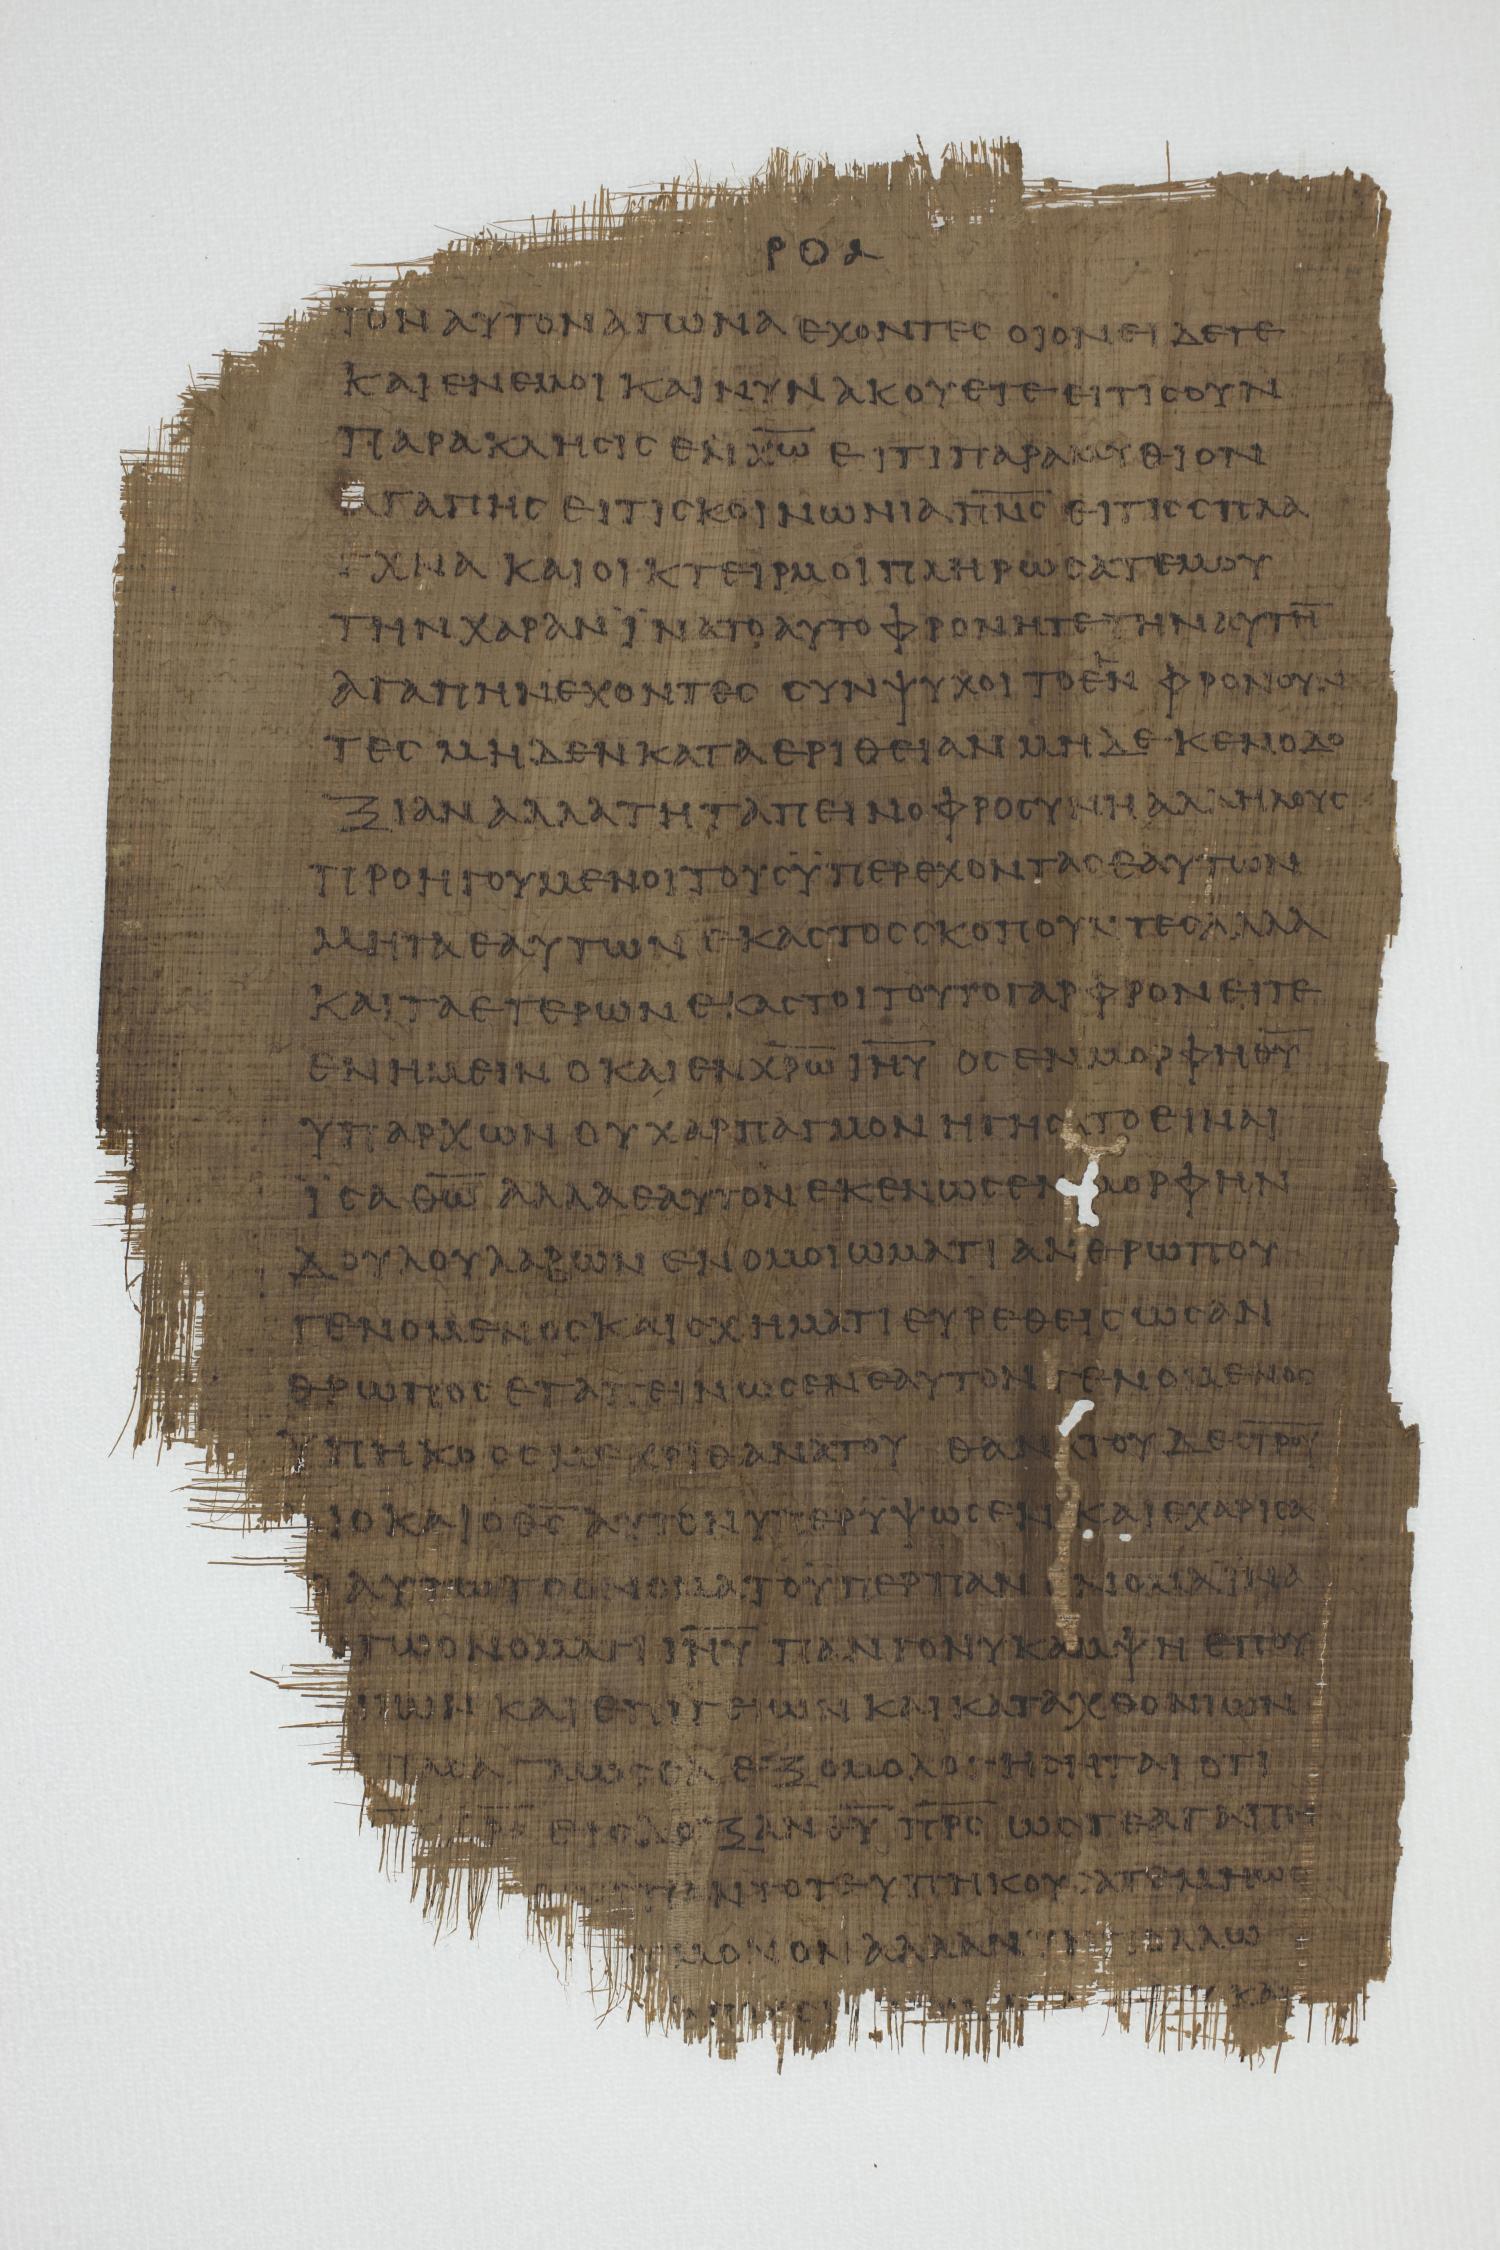 ΡΟΑ
ΤΟΝ ΑΥΤΟΝ ΑΓΩΝΑ ΕΧΟΝΤΕС ΟΙΟΝ ΕΙΔΕΤΕ
ΚΑΙ ΕΝ ΕΜΟΙ ΚΑΙ ΝΥΝ ΑΚΟΥΕΤΕ ΕΙ ΤΙС ΟΥΝ
ΠΑΡΑΚΛΗСΙС ΕΝ Χ̅Ω̅ ΕΙ ΤΙ ΠΑΡΑΜΥΘΙΟΝ
ΑΓΑΠΗС ΕΙ ΤΙС ΚΟΙΝΩΝΙΑ Π̅Ν̅С̅ ΕΙ ΤΙС СΠΛΑ
ΓΧΝΑ ΚΑΙ ΟΙΚΤΕΙΡΜΟΙ ΠΛΗΡΩСΑΤΕ ΜΟΥ
ΤΗΝ ΧΑΡΑΝ ΪΝΑ ΤΟ ΑΥΤΟ ΦΡΟΝΗΤΕ ΤΗΝ ΑΥΤΗ̅
ΑΓΑΠΗΝ ΕΧΟΝΤΕС СΥΝΨΥΧΟΙ ΤΟ ΕΝ ΦΡΟΝΟΥΝ
ΤΕС ΜΗΔΕΝ ΚΑΤΑ ΕΡΙΘΕΙΑΝ ΜΗΔΕ ΚΕΝΟΔΟ
ΞΙΑΝ ΑΛΛΑ ΤΗ ΤΑΠΕΙΝΟΦΡΟСΥΝΗ ΑΛΛΗΛΟΥС
ΠΡΟΗΓΟΥΜΕΝΟΙ ΤΟΥС ΫΠΕΡΕΧΟΝΤΑС ΕΑΥΤΩΝ
ΜΗ ΤΑ ΕΑΥΤΩΝ ΕΚΑСΤΟС СΚΟΠΟΥΝΤΕС ΑΛΛΑ
ΚΑΙ ΤΑ ΕΤΕΡΩΝ ΕΚΑСΤΟΙ ΤΟΥΤΟ ΓΑΡ ΦΡΟΝΕΙΤΕ
ΕΝ ΗΜΕΙΝ Ο ΚΑΙ ΕΝ Χ̅Ρ̅Ω̅ Ι̅Η̅Υ̅ ΟС ΕΝ ΜΟΡΦΗ Θ̅Υ̅
ΥΠΑΡΧΩΝ ΟΥΧ ΑΡΠΑΓΜΟΝ ΗΓΗСΑΤΟ ΕΙΝΑΙ
ΪСΑ Θ̅Ω̅ ΑΛΛΑ ΕΑΥΤΟΝ ΕΚΕΝΩСΕΝ ΜΟΡΦΗΝ
ΔΟΥΛΟΥ ΛΑΒΩΝ ΕΝ ΟΜΟΙΩΜΑΤΙ ΑΝΘΡΩΠΟΥ
ΓΕΝΟΜΕΝΟС ΚΑΙ СΧΗΜΑΤΙ ΕΥΡΕΘΕΙС ΩС ΑΝ
ΘΡΩΠΟС ΕΤΑΠΕΙΝΩСΕΝ ΕΑΥΤΟΝ ΓΕΝΟΜΕΝΟС
ΫΠΗΚΟΟС ΜΕΧΡΙ ΘΑΝΑΤΟΥ ΘΑΝΑΤΟΥ ΔΕ С̅Τ̅Ρ̅Ο̅Υ̅
ΙΟ ΚΑΙ Ο Θ̅С̅ ΑΥΤΟΝ ΥΠΕΡΥΨΩСΕΝ ΚΑΙ ΕΧΑΡΙСΑ
ΑΥΤΩ ΤΟ ΟΝΟΜΑ ΤΟ ΫΠΕΡ ΠΑΝ ΟΝΟΜΑ ΪΝΑ
ΤΩ ΟΝΟΜΑΤΙ Ι̅Η̅Υ̅ ΠΑΝ ΓΟΝΥ ΚΑΜΨΗ ΕΠΟΥ
ΝΙΩΝ ΚΑΙ ΕΠΙΓΕΙΩΝ ΚΑΙ ΚΑΤΑΧΘΟΝΙΩΝ
ΠΑСΑ ΓΛΩССΑ ΕΞΟΜΟΛΟΓΗСΗΤΑΙ ΟΤΙ
ΕΙС ΔΟΞΑΝ Θ̅Υ̅ Π̅Ρ̅С̅ ΩСΤΕ ΑΓΑΠΗ
ΠΑΝΤΟΤΕ ΥΠΗΚΟΥСΑΤΕ ΜΗ ΩС
ΜΟΝΟΝ ΑΛΛΑ ΝΥΝ ΠΟΛΛΩ
ΚΑΙ